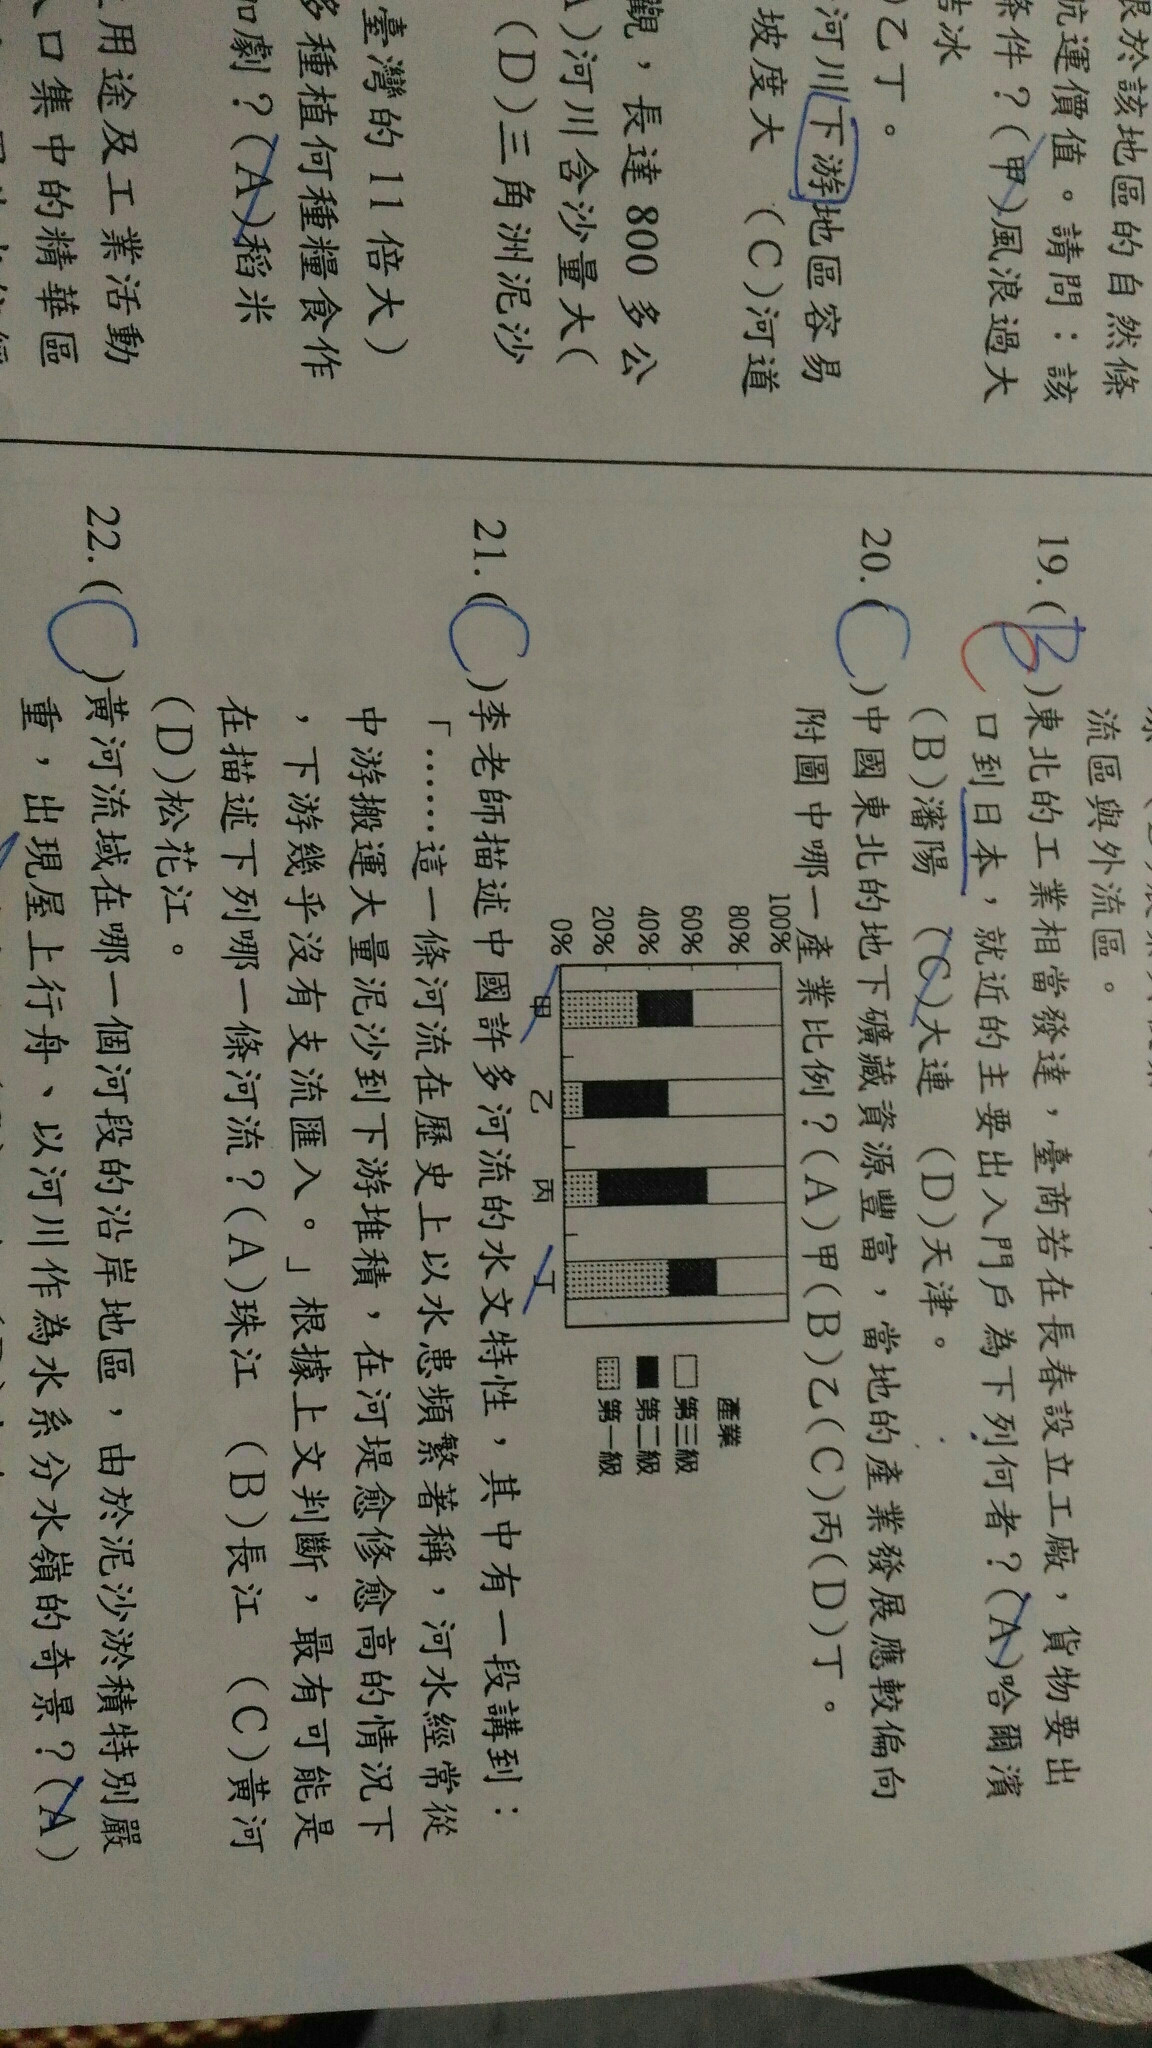 限於該地區的自然條
航運價值。請問：該
條件？(甲)風浪過大
結冰
)乙丁。
河川下游地區容易
坡度大 (C)河道
觀，長達 800 多公
A)河川含沙量大(
(D)三角洲泥沙
臺灣的 11 倍大)
多種植何種糧食作
加劇？(A)稻米
用途及工業活動
口集中的精華區
流區與外流區。
19.(B C)東北的工業相當發達，臺商若在長春設立工廠，貨物要出
口到日本，就近的主要出入門戶為下列何者？(A)哈爾濱
(B)瀋陽 (C)大連 (D)天津。
20.(C)中國東北的地下礦藏資源豐富，當地的產業發展應較偏向
附圖中哪一產業比例？(A)甲(B)乙(C)丙(D)丁。
100%
80%
60%
40%
20%
0%
甲 乙 丙 丁
產業
第三級
第二級
第一級
21.(C)李老師描述中國許多河流的水文特性，其中有一段講到：
「……這一條河流在歷史上以水患頻繁著稱，河水經常從
中游搬運大量泥沙到下游堆積，在河堤愈修愈高的情況下
，下游幾乎沒有支流匯入。」根據上文判斷，最有可能是
在描述下列哪一條河流？(A)珠江 (B)長江 (C)黃河
(D)松花江。
22.(C)黃河流域在哪一個河段的沿岸地區，由於泥沙淤積特別嚴
重，出現屋上行舟、以河川作為水系分水嶺的奇景？(A)